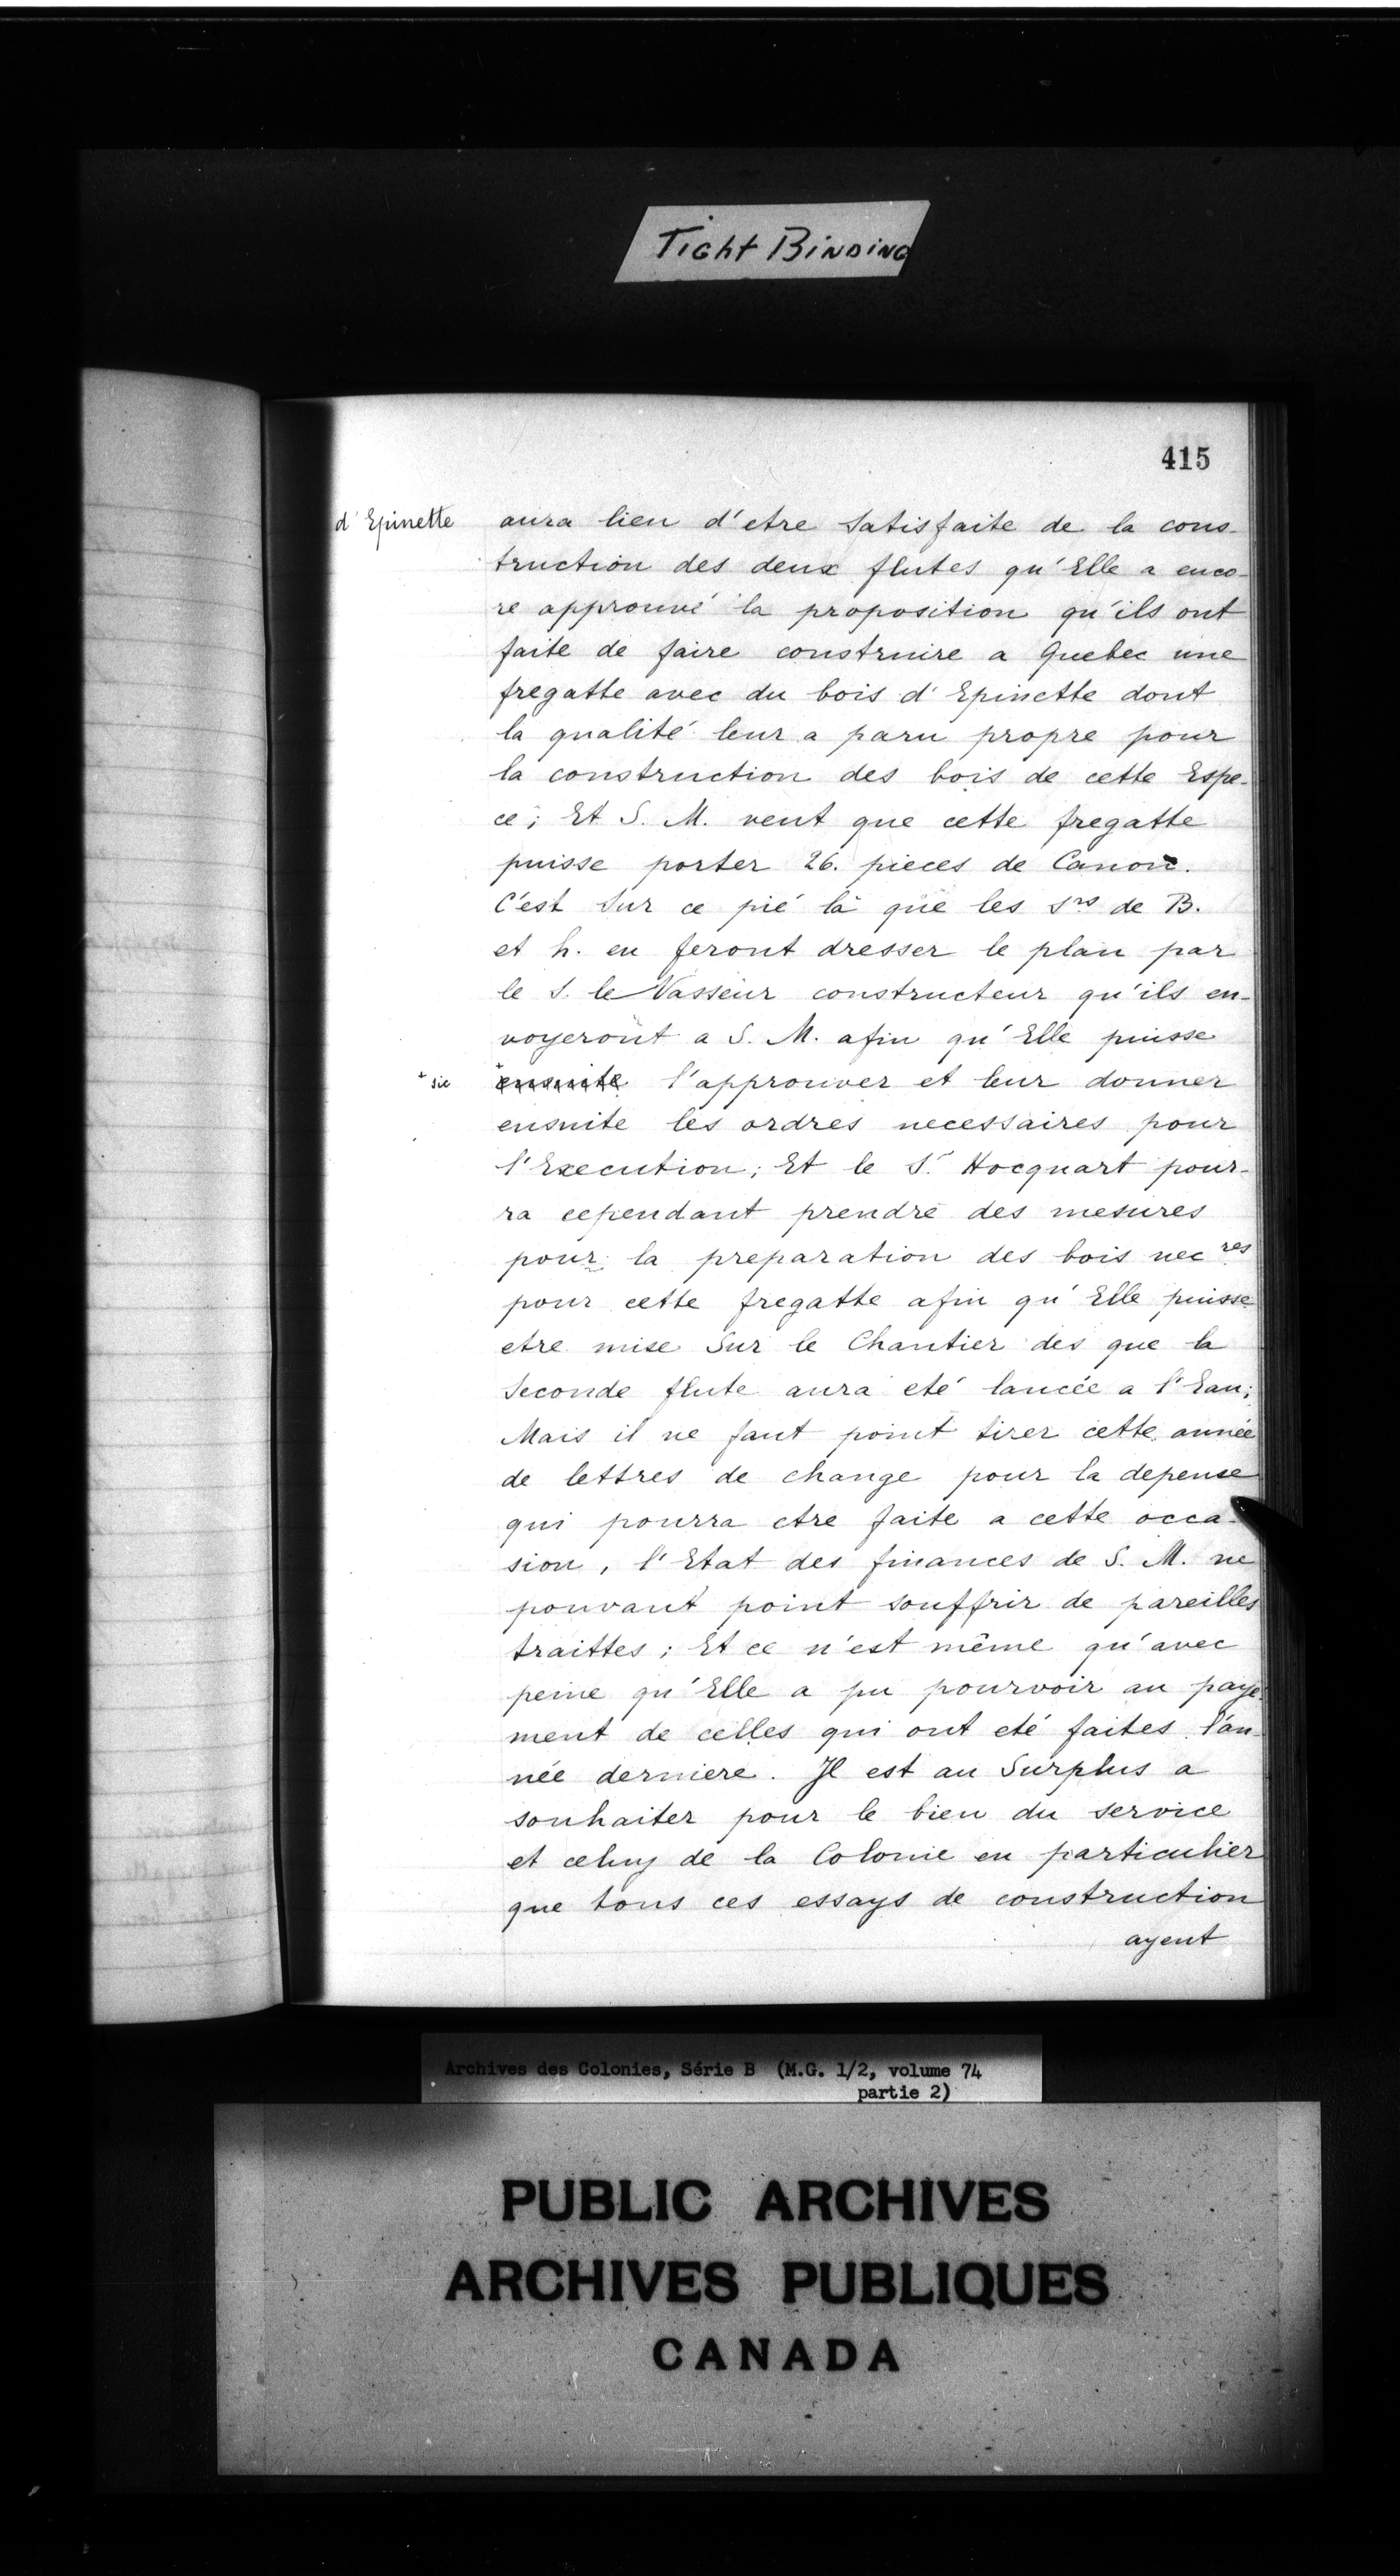 Tight Binding
415
d'Epinette
aura lieu d'etre Satisfaite de la cons-
truction des deux flutes qu'Elle a enco-
re approuvé la proposition qu'ils ont
faite de faire construire a Quebec une
fregatte avec du bois d'Epinette dont
la qualité leur a paru propre pour
la construction des bois de cette Espe-
ce; Et S. M. veut que cette fregatte
puisse porter 26. pieces de Canon.
C'est Sur ce pié là que les Srs de B.
et h. en feront dresser le plan par
le S. le Vasseur constructeur qu'ils en-
voyeront a S. M. afin qu'Elle puisse
+ sic
+ensuite l'approuver et leur donner
ensuite les ordres necessaires pour
l'Execution; Et le Sr. Hocquart pour-
ra cependant prendre des mesures
pour la preparation des bois necres
pour cette fregatte afin qu'Elle puisse
etre mise Sur le Chantier des que la
Seconde flute aura eté lancée a l'Eau;
Mais il ne faut point tirer cette année
de lettres de change pour la depense
qui pourra etre faite a cette occa-
sion, l'Etat des finances de S. M. ne
pouvant point souffrir de pareilles
traittes; Et ce n'est même qu'avec
peine qu'Elle a pu pourvoir au paye-
ment de celles qui ont eté faites l'an-
née derniere. Il est au Surplus a
souhaiter pour le bien du service
et celuy de la Colonie en particulier
que tous ces essays de construction
ayent
Archives des Colonies, Série B (M.G. 1/2, volume 74
partie 2)
PUBLIC ARCHIVES
ARCHIVES PUBLIQUES
CANADA